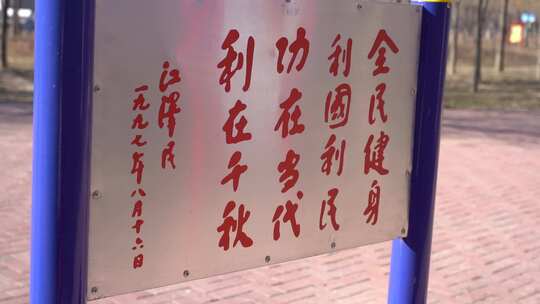 全民健身
利國利民
功在当代
利在千秋
江泽民
一九九七年八月十六日